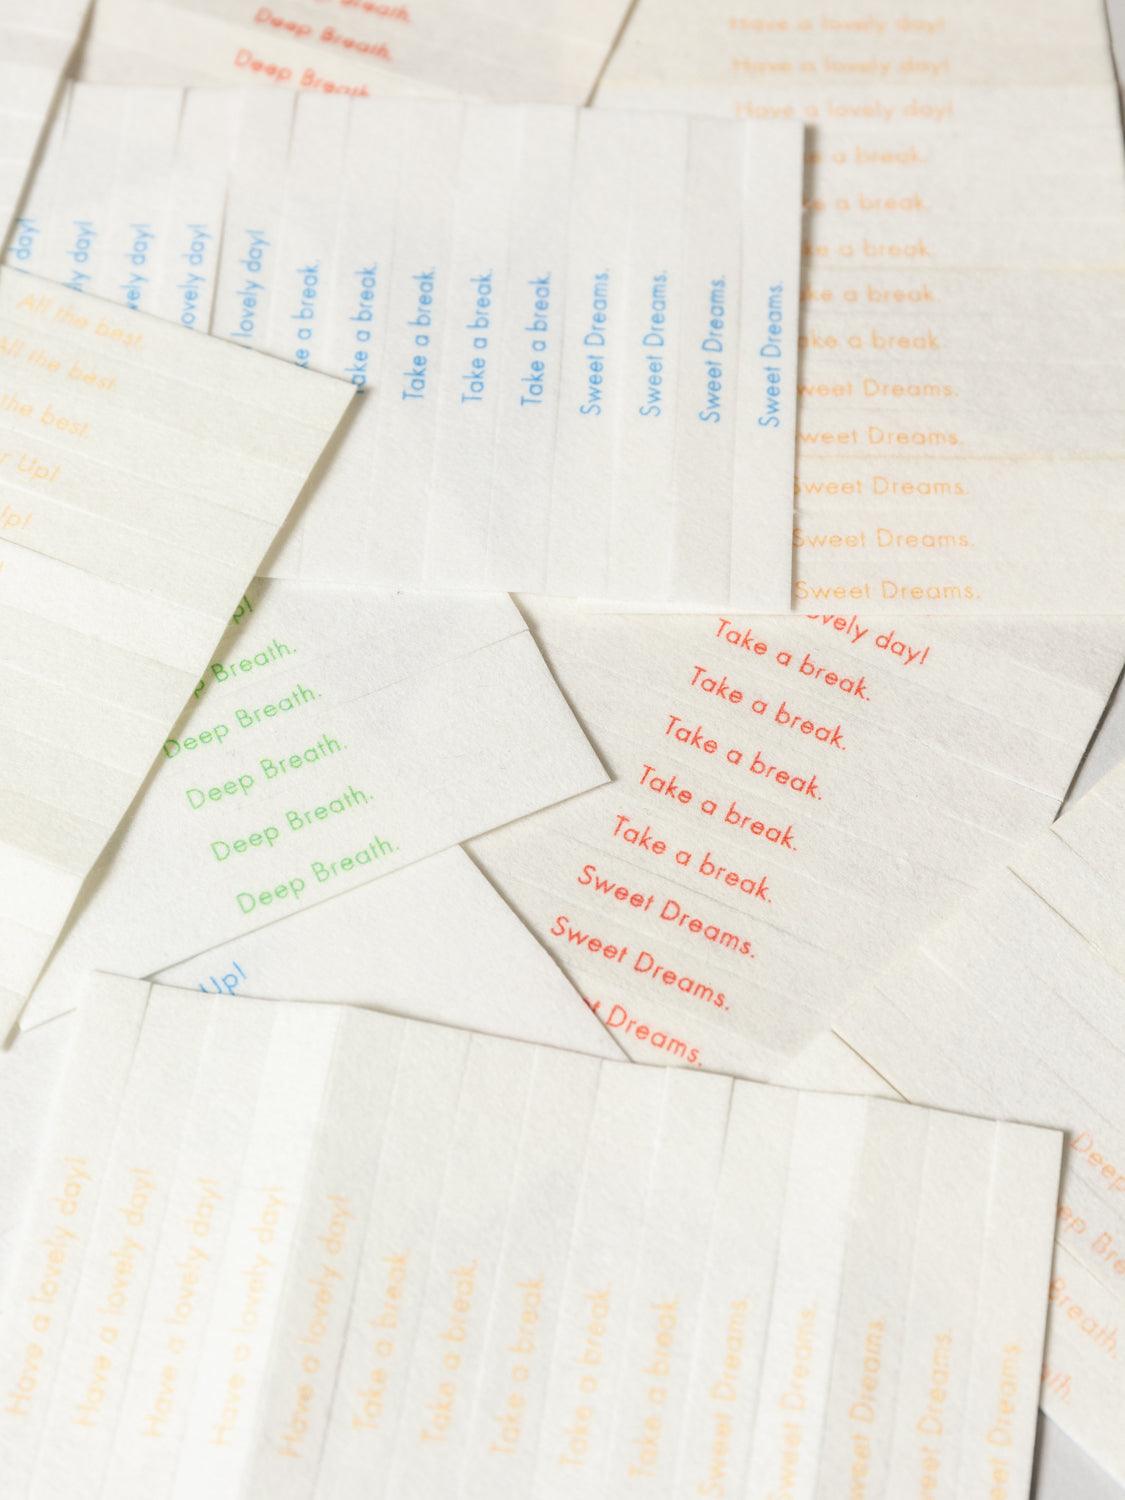 Deep Breath.
Deep Breath.
Have a lovely day!
Have a lovely day!
Have a lovely day!
a break.
a break.
a break.
a break.
a break.
Dreams.
Dreams.
Sweet Dreams.
Sweet Dreams.
Sweet Dreams.
day!
day!
day!
day!
lovely day!
a break.
a break.
Take a break.
Take a break.
Take a break.
Sweet Dreams.
Sweet Dreams.
Sweet Dreams.
Sweet Dreams.
All the best.
All the best.
the best.
Up!
Up!
Breath.
Deep Breath.
Deep Breath.
Deep Breath.
Deep Breath.
day!
Take a break.
Take a break.
Take a break.
Take a break.
Take a break.
Sweet Dreams.
Sweet Dreams.
Dreams.
Up!
Deep
Breath.
Have a lovely day!
Have a lovely day!
Have a lovely day!
Have a lovely day!
Have a lovely day!
Take a break.
Take a break.
Take a break.
Take a break.
Take a break.
Sweet Dreams.
Sweet Dreams.
Dreams.
Dreams.
Dreams.